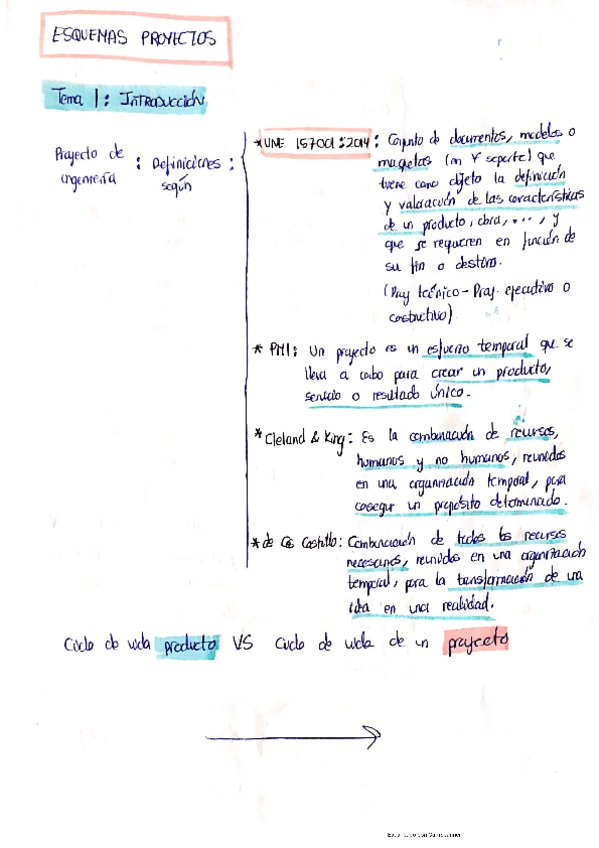 ESQUEMAS PROYECTOS
Tema 1: INTRODUCCIÓN
Proyecto de ingeniería : Definiciones según :
* UNE 157001:2014 : Conjunto de documentos, modelos o
maquetas (en soporte) que
tiene como objeto la definición
y valoración de las características
de un producto, obra, ..., y
que se requieren en función de
su fin o destino.
(Proy técnico - Proy. ejecutivo o
constructivo)
* PMI: Un proyecto es un esfuerzo temporal que se
lleva a cabo para crear un producto,
servicio o resultado único.
* Cleland & King: Es la combinación de recursos,
humanos y no humanos, reunidos
en una organización temporal, para
conseguir un propósito determinado.
* de Cos Castillo: Combinación de todos los recursos
necesarios, reunidos en una organización
temporal, para la transformación de una
idea en una realidad.
Ciclo de vida producto VS Ciclo de vida de un proyecto